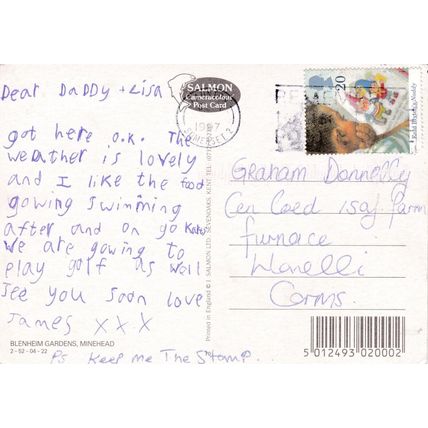 Dear Daddy + Lisa
got here o.k. The
weather is lovely
and I like the food
gowing swimming
after and on go Karts
We are gowing to
play golf as well
See you soon love
James X X X
PS Keep me The Stamp.
BLENHEIM GARDENS, MINEHEAD
2-52-04-22
SALMON
Cameracolour
Post Card
Printed in England © J. SALMON LTD. SEVENOAKS, KENT. TEL.
1997
SOMERSET
20
Enid Blyton's Noddy
Graham Donnelly
Cen Coed isaf farm
furnace
Llanelli
Carms.
5 012493 020002